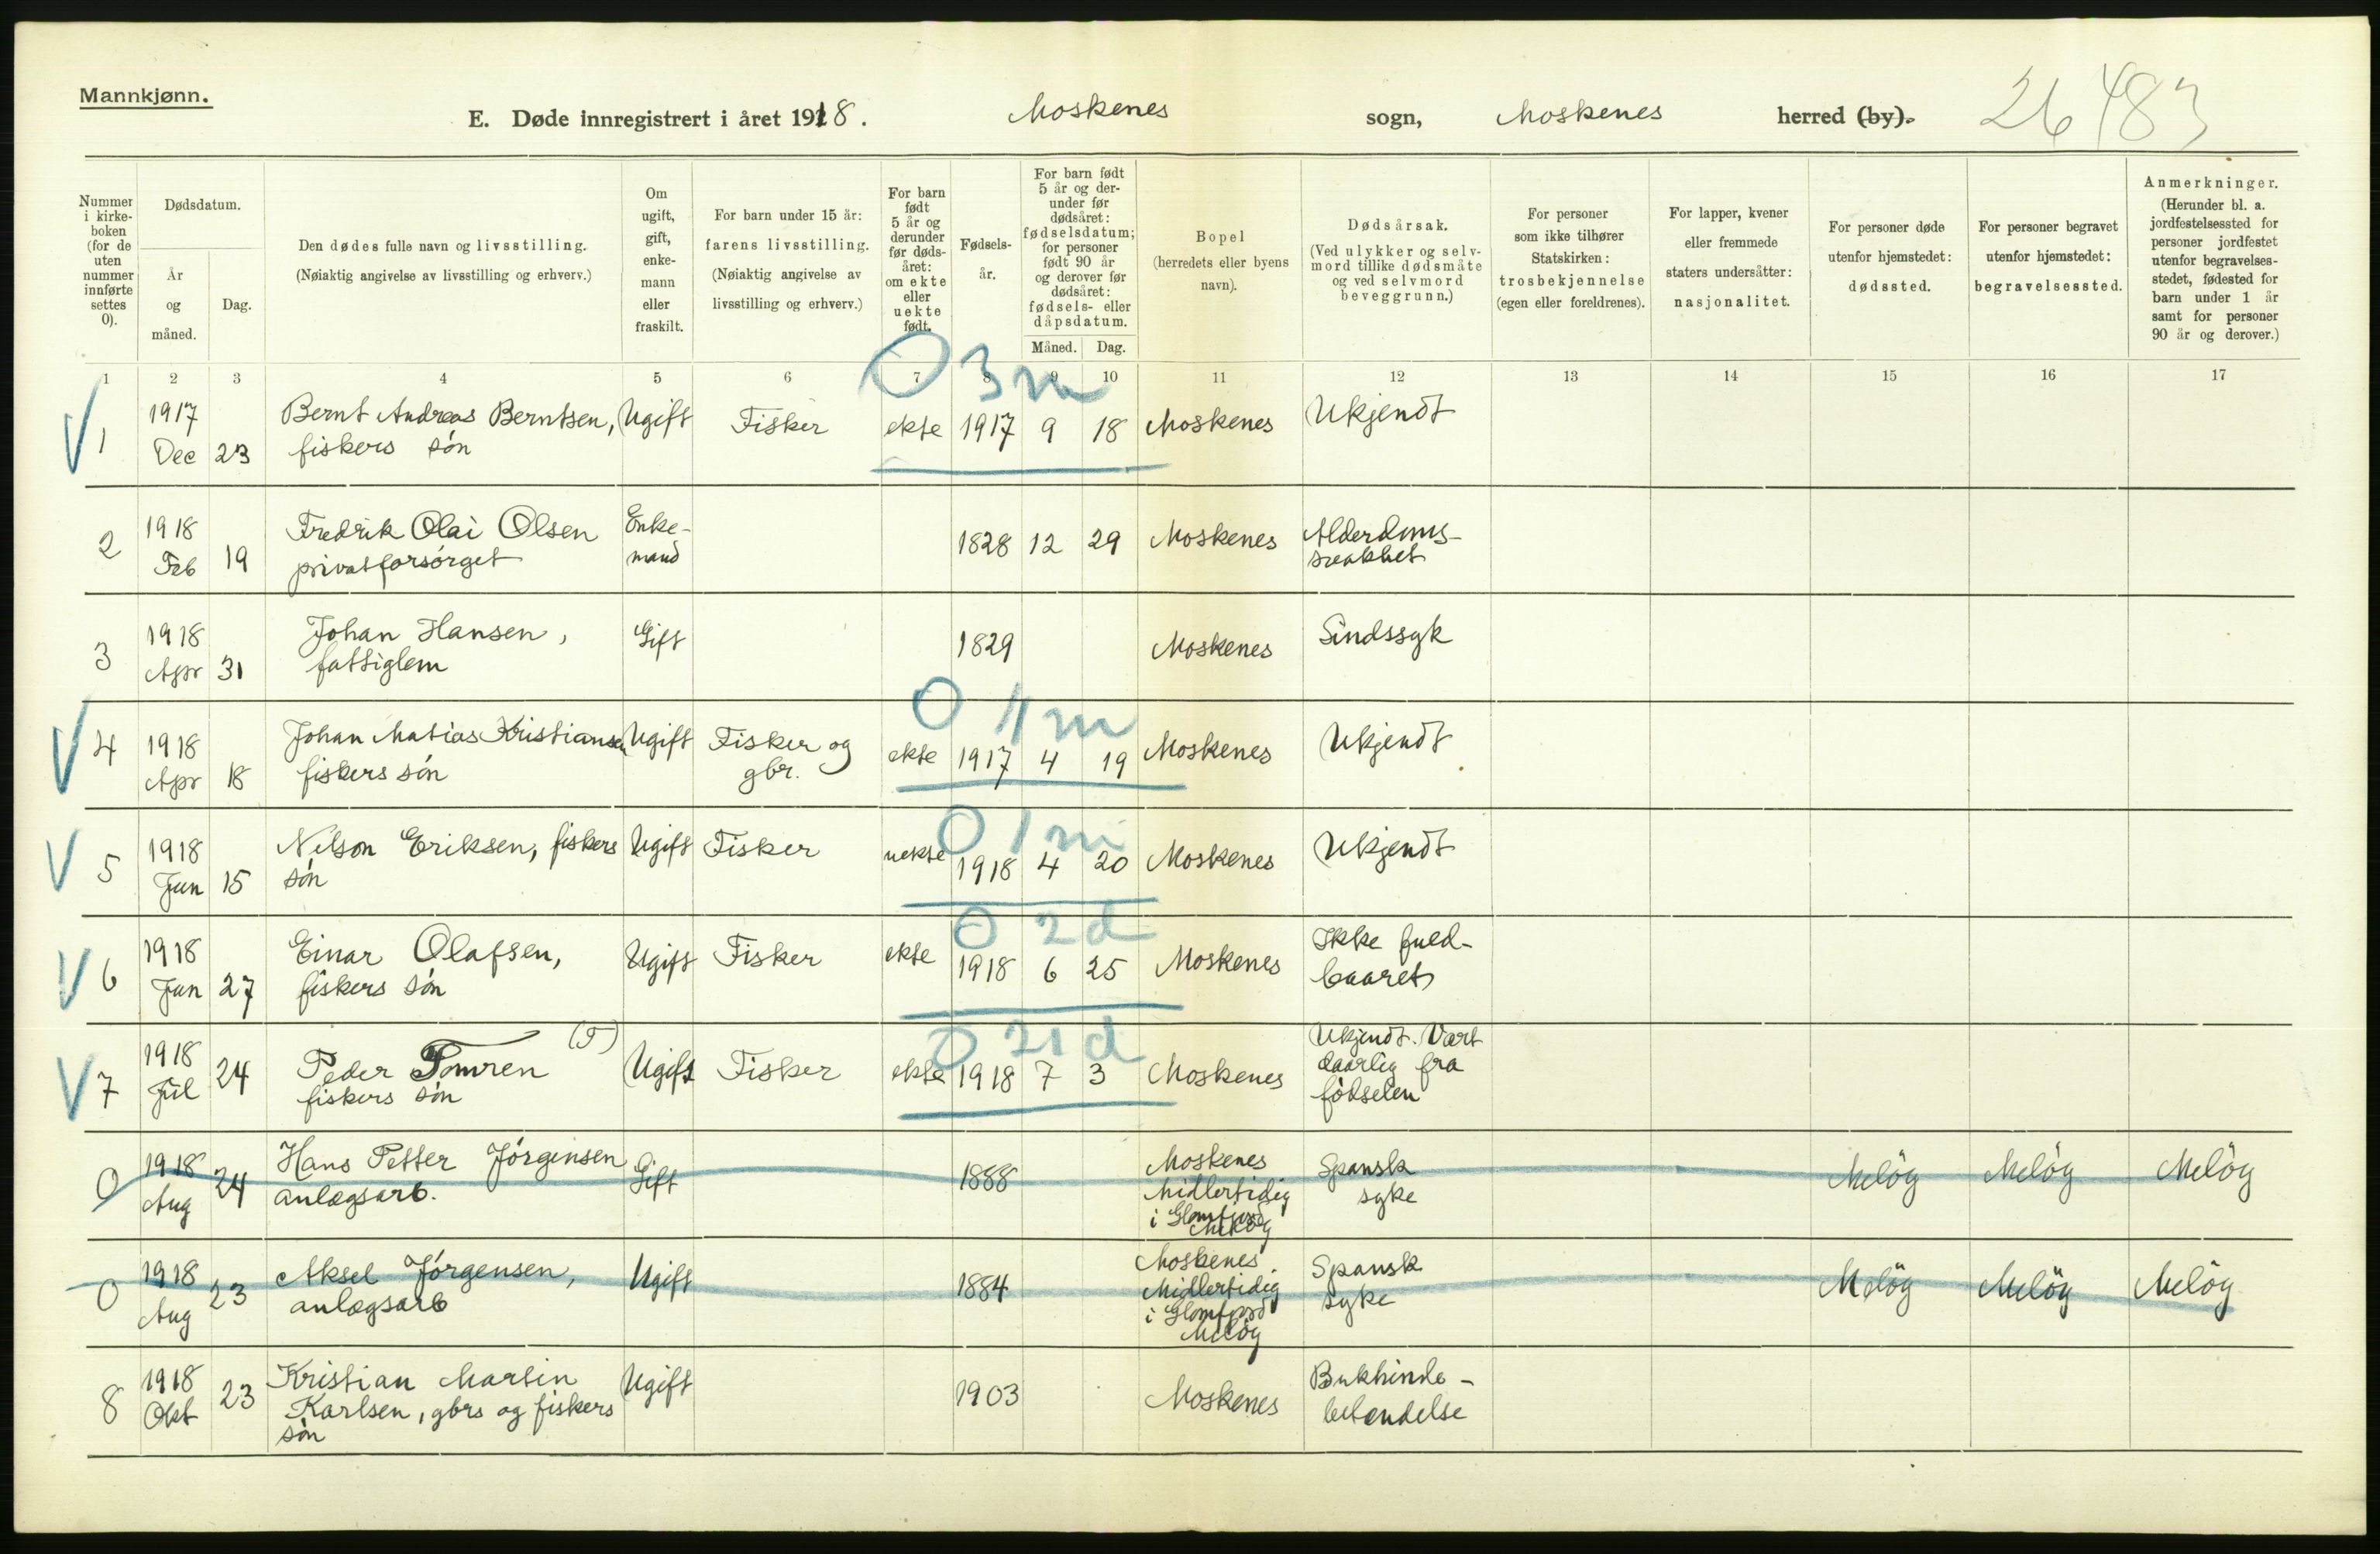 Mannkjønn.
E. Døde innregistrert i året 1918. Moskenes sogn, Moskenes herred (by). 26 483
Nummer i kirkeboken (for de uten nummer innførte settes 0).
Dødsdatum.
År og måned.
Dag.
Den dødes fulle navn og livsstilling.
(Nøiaktig angivelse av livsstilling og erhverv.)
Om ugift, gift, enkemann eller fraskilt.
For barn under 15 år: farens livsstilling. (Nøiaktig angivelse av livsstilling og erhverv.)
For barn født 5 år og derunder før dødsåret: om ekte eller uekte født.
Fødselsår.
For barn født 5 år og derunder før dødsåret: fødselsdatum; for personer født 90 år og derover før dødsåret: fødsels- eller dåpsdatum.
Måned. Dag.
Bopel (herredets eller byens navn).
Dødsårsak. (Ved ulykker og selvmord tillike dødsmåte og ved selvmord beveggrunn.)
For personer som ikke tilhører Statskirken: trosbekjennelse (egen eller foreldrenes).
For lapper, kvener eller fremmede staters undersåtter: nasjonalitet.
For personer døde utenfor hjemstedet: dødssted.
For personer begravet utenfor hjemstedet: begravelsessted.
Anmerkninger. (Herunder bl. a. jordfestelsessted for personer jordfestet utenfor begravelsesstedet, fødested for barn under 1 år samt for personer 90 år og derover.)
1 2 3 4 5 6 7 8 9 10 11 12 13 14 15 16 17
0 3 m
1 1917 Dec 23 Bernt Andreas Berntsen, fiskers søn Ugift Fisker ekte 1917 9 18 Moskenes Ukjendt
2 1918 Feb 19 Fredrik Olai Olsen privatforsørget Enkemand 1828 12 29 Moskenes Alderdoms- svakhet
3 1918 Apr 31 Johan Hansen, fattiglem Gift 1829 Moskenes Sindssyk
0 11 m
4 1918 Apr 18 Johan Matias Kristiansen fiskers søn Ugift Fisker og gbr. ekte 1917 4 19 Moskenes Ukjendt
0 1 m
5 1918 Jun 15 Nilson Eriksen, fiskers søn Ugift Fisker uekte 1918 4 20 Moskenes Ukjendt
0 2 d
6 1918 Jun 27 Einar Olafsen, fiskers søn Ugift Fisker ekte 1918 6 25 Moskenes Ikke fuld- baaret
0 21 d
7 1918 Jul 24 Peder Tomren (T) fiskers søn Ugift Fisker ekte 1918 7 3 Moskenes Ukjendt. Vært daarlig fra fødselen
0 1918 Aug 24 Hans Petter Jørgensen anlægsarb. Gift 1888 Moskenes Midlertidig i Glomfjord Meløy Spansk syke Meløy Meløy Meløy
0 1918 Aug 23 Aksel Jørgensen, anlægsarb Ugift 1884 Moskenes Midlertidig i Glomfjord Meløy Spansk syke Meløy Meløy Meløy
8 1918 Okt 23 Kristian Martin Karlsen, gbrs og fiskers søn Ugift 1903 Moskenes Bukhinde- betendelse